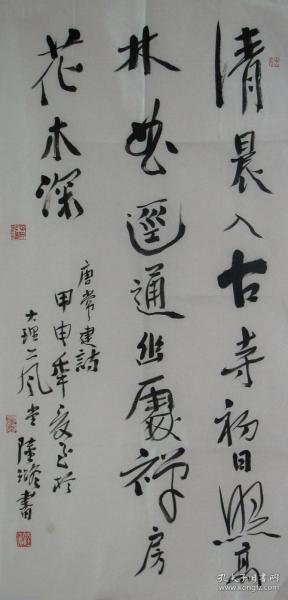 清晨入古寺初日照高
林曲逕通幽處禅房
花木深
唐常建詩
甲申年夏至於
大理二风堂陸書
孔夫子旧书网